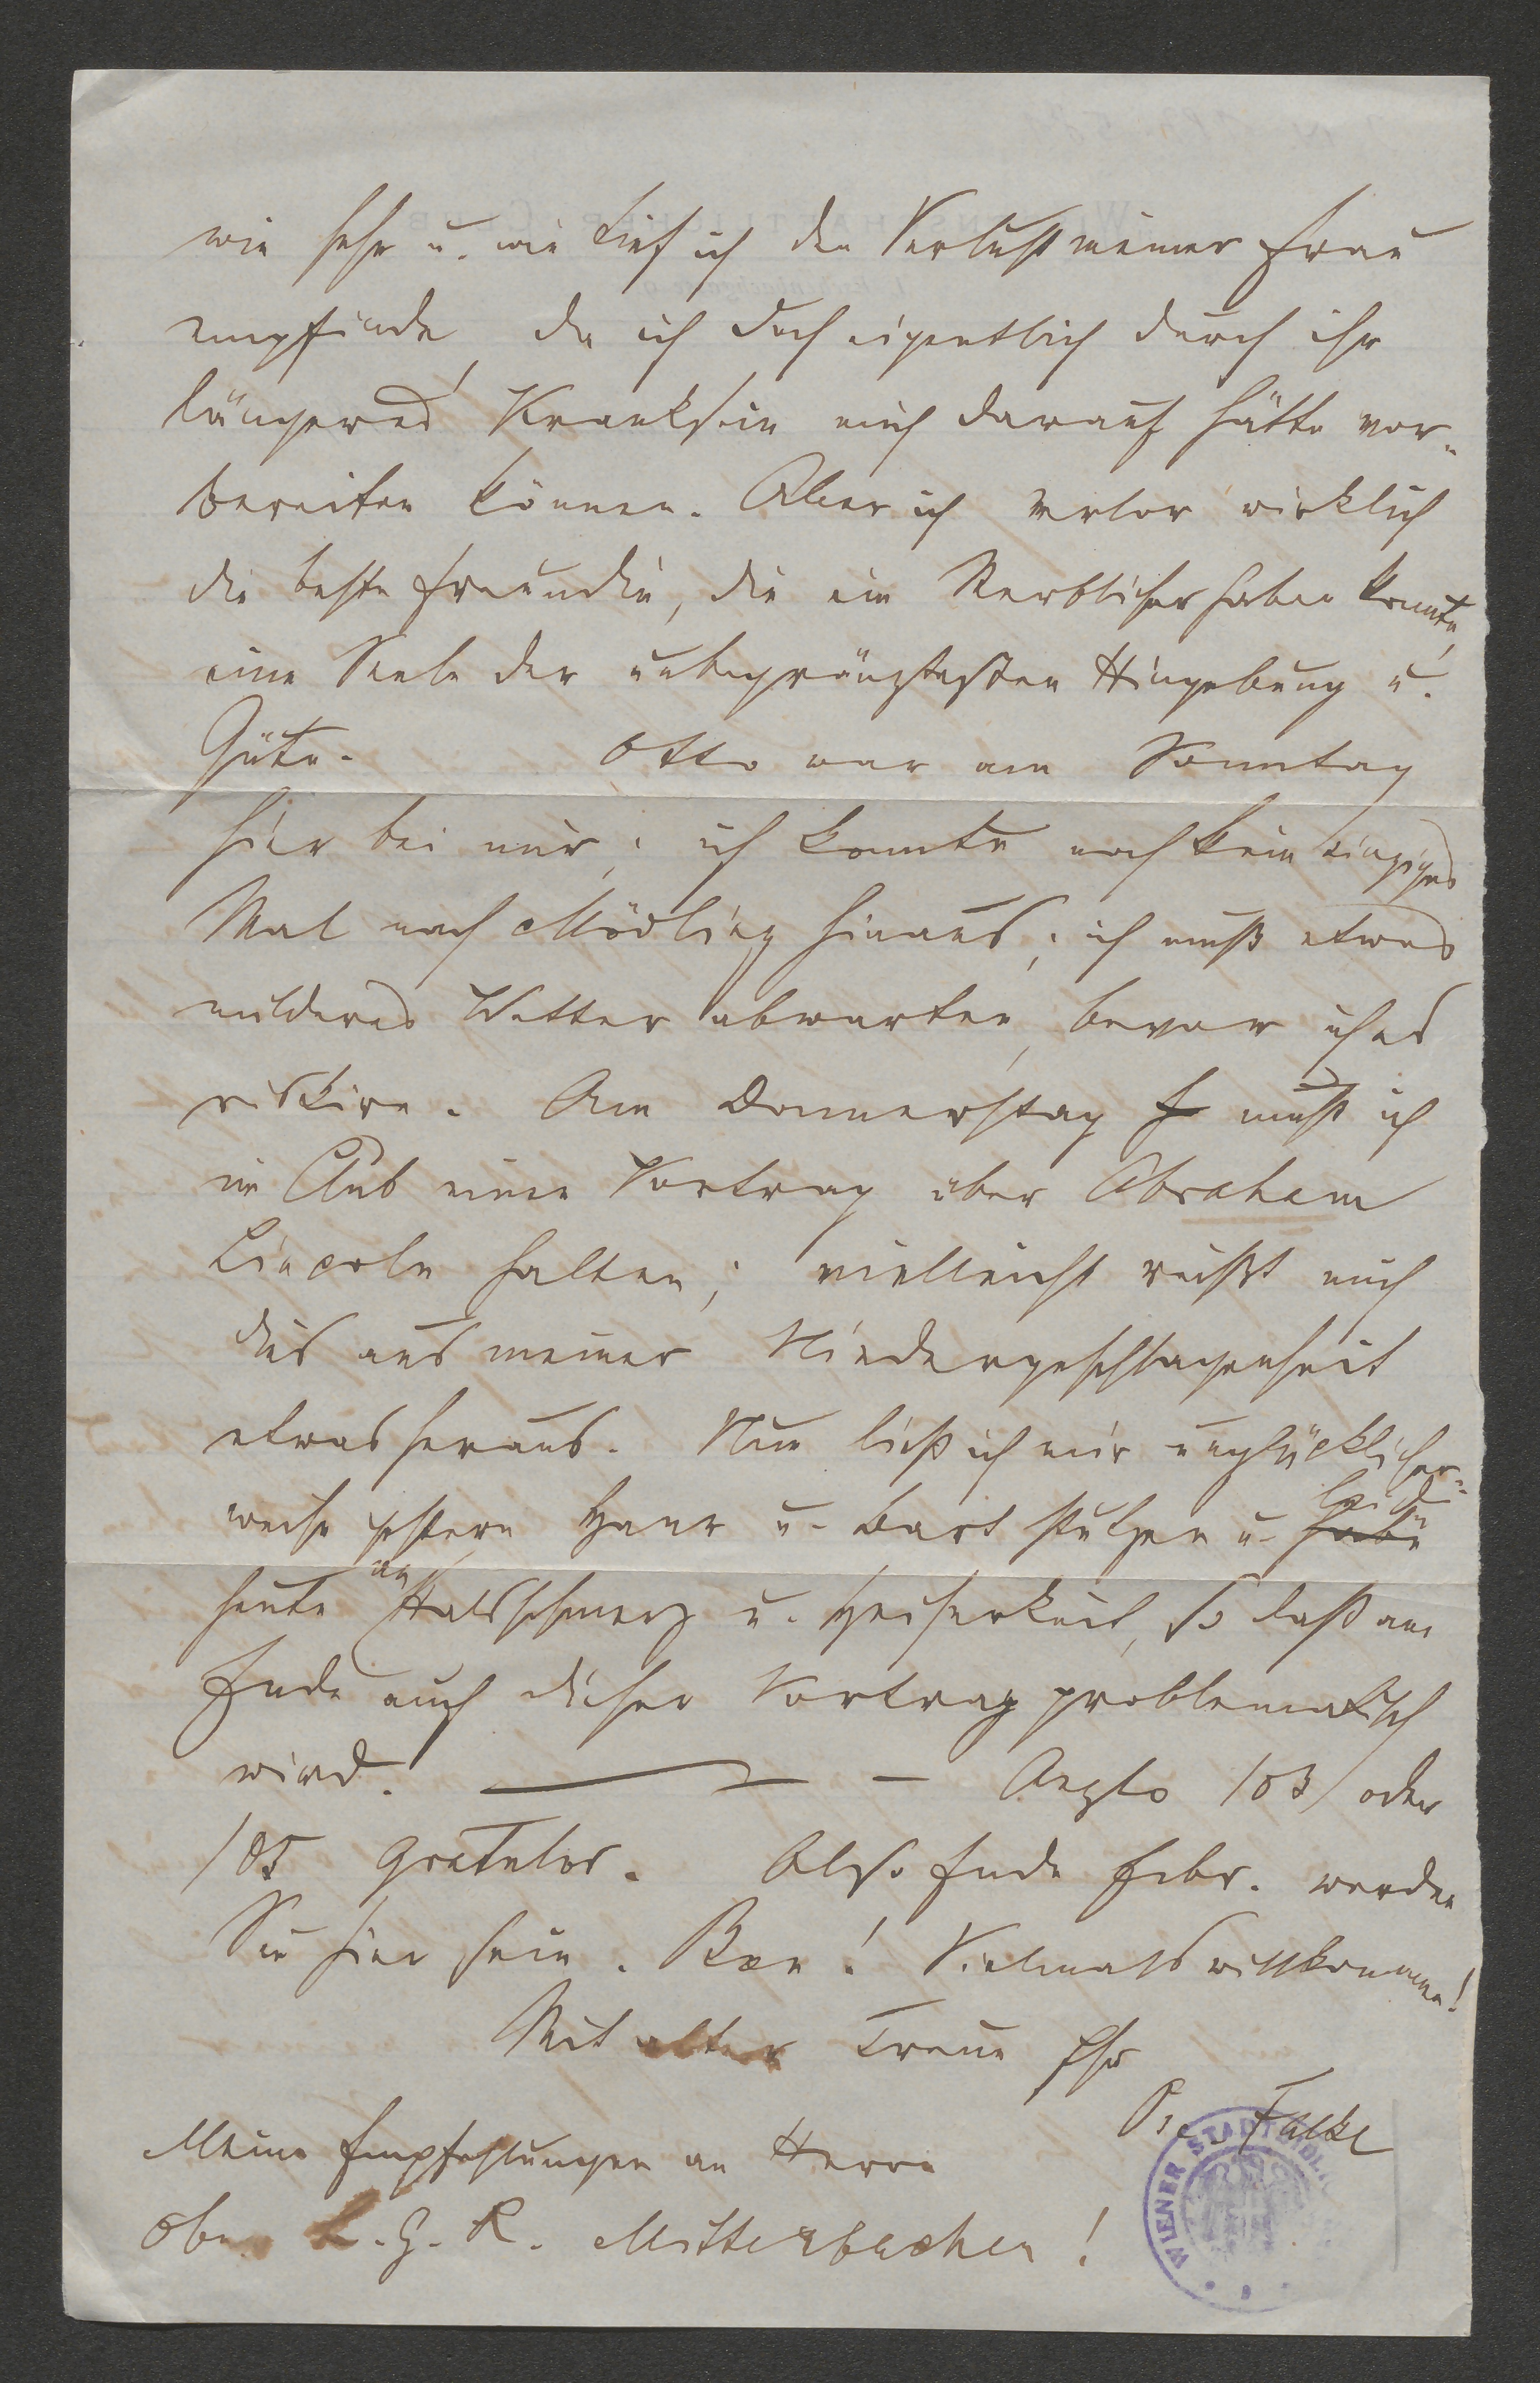 wie sehr u. wie tief ich den Verlust meiner Frau
empfinde, da ich doch eigentlich durch ihr
längeres Kranksein mich darauf hätte vor-
bereiten können. Aber ich verlor wirklich
die beste Freundin, die ein Sterblicher haben konnte,
eine Seele der unbegränztesten Hingebung u.
Güte. Otto war am Sonntag
hier bei mir; ich konnte noch kein einziges
Mal nach Mödling hinaus; ich muß etwas
milderes Wetter abwarten, bevor ich es
riskire. Am Donnerstag muß ich
im Club einen Vortrag über Abraham
Lincoln halten; vielleicht reißt mich
dies aus meiner Niedergeschlagenheit
etwas heraus. Nun ließ ich mir unglücklicher-
weise gestern Haar u. Bart stutzen u. habe leide
heute an Halsschmerz u. Heiserkeit, so daß am
Ende auch dieser Vortrag problematisch
wird. — — Anglo 103 oder
105 Gratulor. Also Ende Febr. werden
Sie hier sein. Vielmals willkommen!
Mit alter Treue Ihr
Falke
Meine Empfehlungen an Herrn
L. G. R. Mitterbacher!
WIENER STADTBIBL